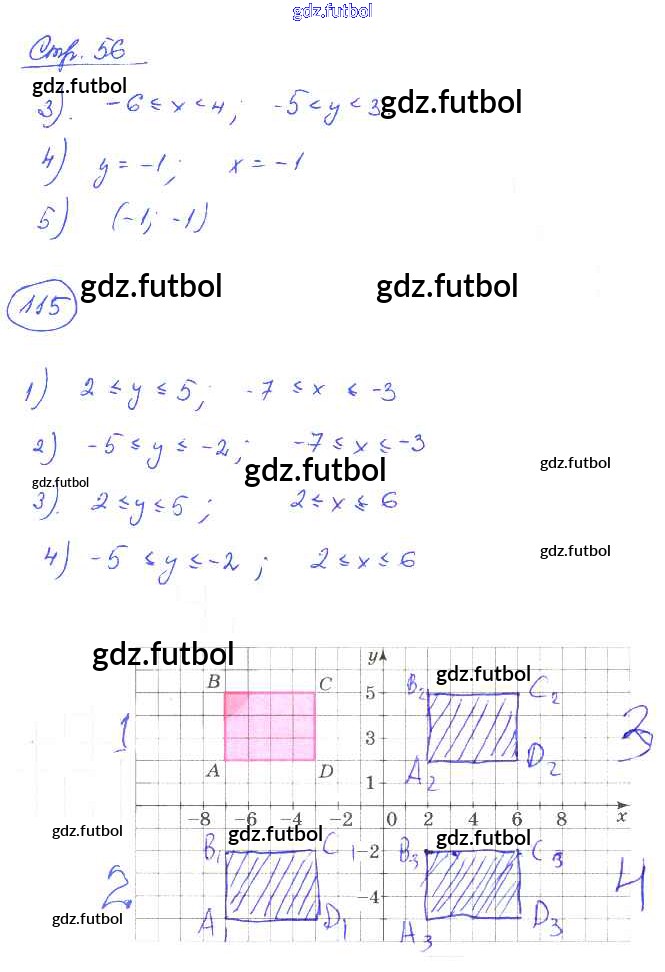 gdz.futbol
Стр. 56
gdz.futbol
3). -6 ≤ x < 4; -5 < y < 3 gdz.futbol
4) y = -1; x = -1
5) (-1; -1)
115 gdz.futbol gdz.futbol
1) 2 ≤ y ≤ 5; -7 ≤ x ≤ -3
2) -5 ≤ y ≤ -2; -7 ≤ x ≤ -3
gdz.futbol gdz.futbol
gdz.futbol
3). 2 ≤ y ≤ 5; 2 ≤ x ≤ 6
4) -5 ≤ y ≤ -2; 2 ≤ x ≤ 6 gdz.futbol
gdz.futbol y
gdz.futbol
B C 5 B2 C2
1 3 3
A D A2 D2
1
−8 −6 −4 −2 0 2 4 6 8 x
gdz.futbol gdz.futbol gdz.futbol
B1 C1 −2 B3 C3
2 −4 4
gdz.futbol A D1 A3 D3